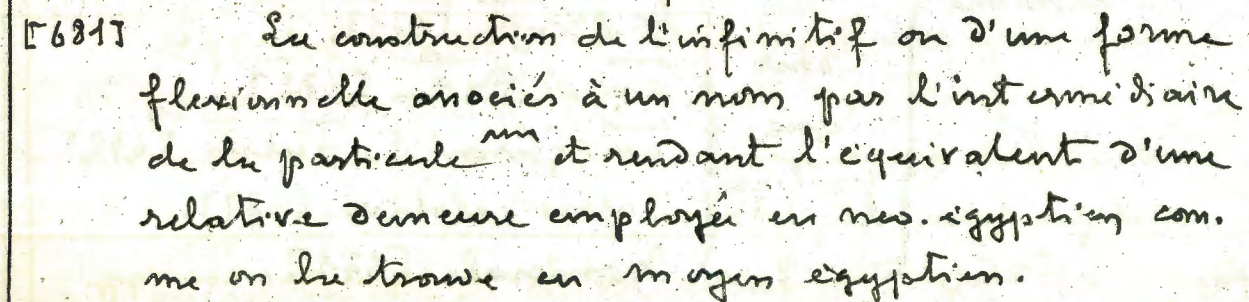 [681] La construction de l'infinitif ou d'une forme
flexionnelle associés à un nom par l'intermédiaire
de la particule 𓈖 et rendant l'équivalent d'une
relative demeure employée en neo.égyptien com.
me on la trouve en moyen égyptien.